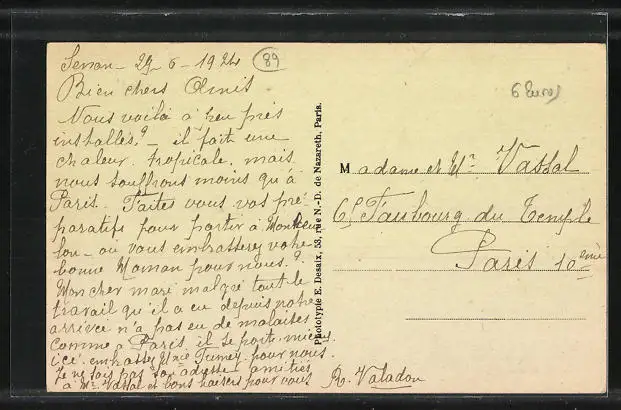 29-6-1924 89
Bien chers Amis
Nous voilà à peu près
installés? - il fait une
chaleur tropicale, mais
nous souffrons moins qu'à
Paris. Faites vous vos pré-
paratifs pour partir à
lon - où vous embrasserez votre
bonne Maman pour nous?
Mon cher mari malgré tout le
travail qu'il a eu depuis notre
arrivée n'a pas eu de malaises
comme à Paris, il se porte mieux
ici. embrassez pour nous.
Je ne sais pas son adresse amitiés
à Mr Vassal et bons baisers pour vous
R. Valadon
Phototypie E. Desaix, 53, rue N.-D. de Nazareth, Paris.
6 Euros
Madame et Mr Vassal
Faubourg du Temple
Paris 10ème